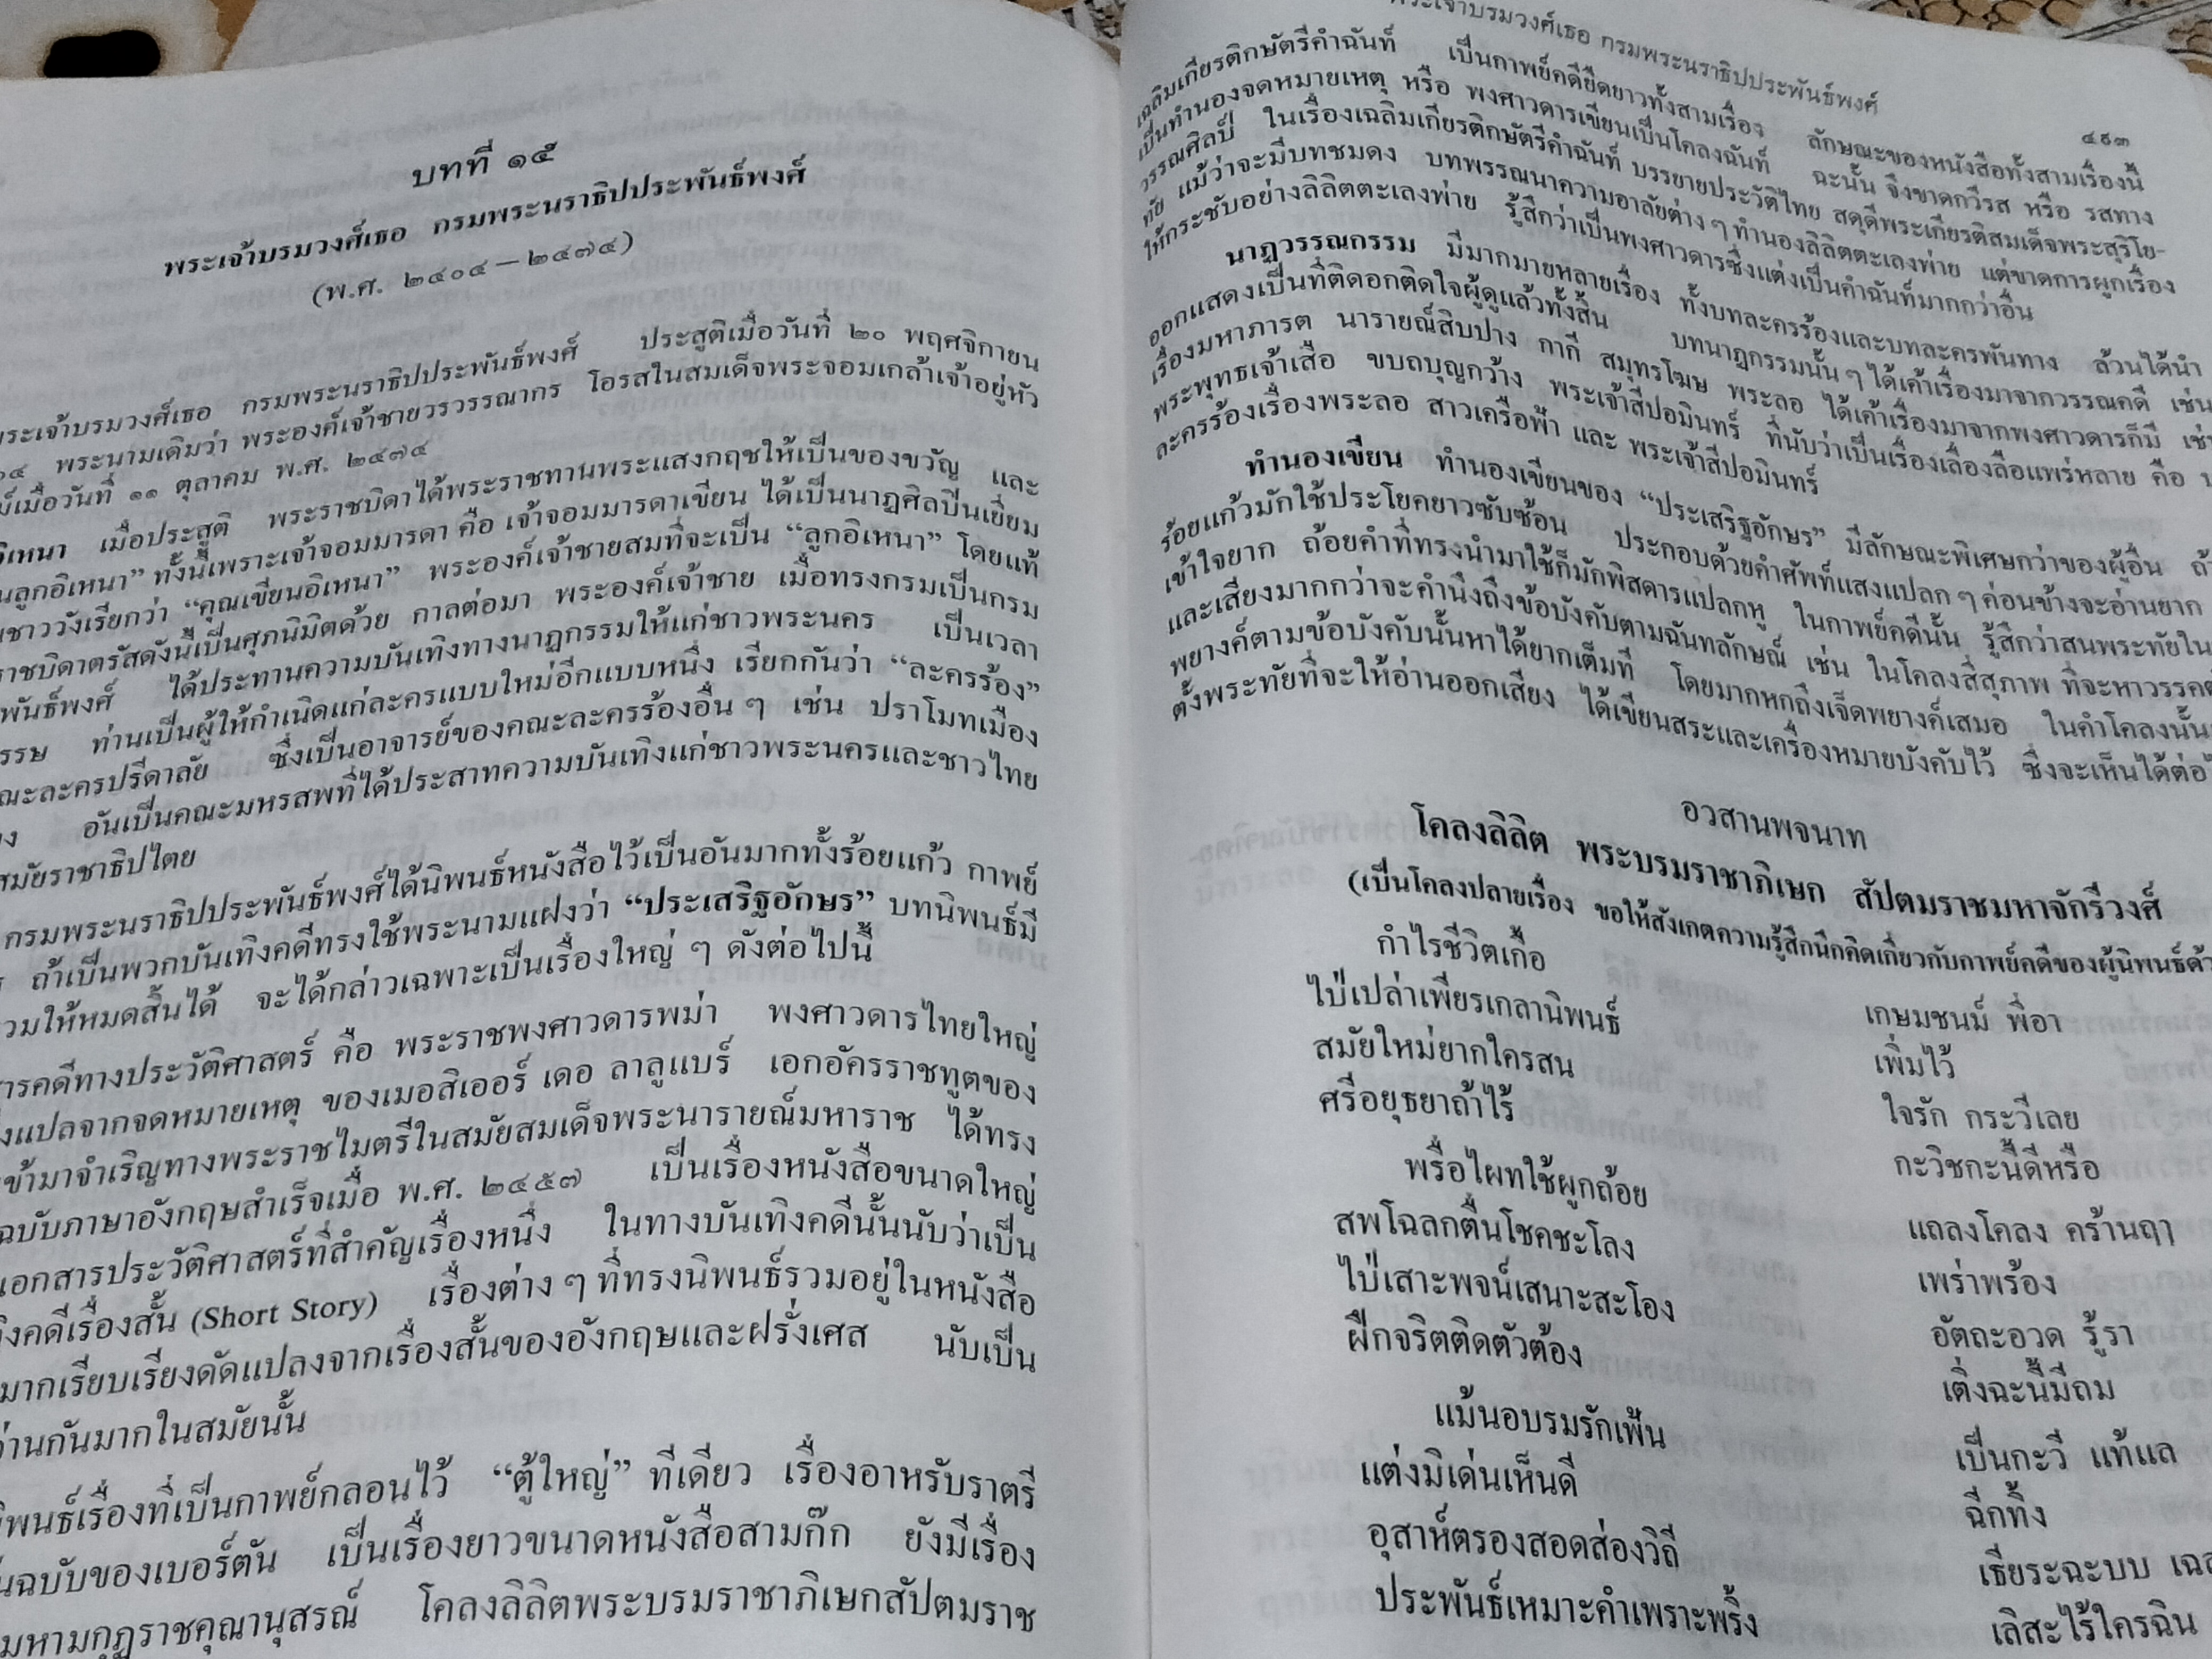 บทที่ ๑๕
พระเจ้าบรมวงศ์เธอ กรมพระนราธิปประพันธ์พงศ์
(พ.ศ. ๒๔๐๔ — ๒๔๗๔)
พระเจ้าบรมวงศ์เธอ กรมพระนราธิปประพันธ์พงศ์ ประสูติเมื่อวันที่ ๒๐ พฤศจิกายน
พระนามเดิมว่า พระองค์เจ้าชายวรวรรณากร โอรสในสมเด็จพระจอมเกล้าเจ้าอยู่หัว
เมื่อวันที่ ๑๑ ตุลาคม พ.ศ. ๒๔๗๔
อิเหนา เมื่อประสูติ พระราชบิดาได้พระราชทานพระแสงกฤชให้เป็นของขวัญ และ
ลูกอิเหนา” ทั้งนี้เพราะเจ้าจอมมารดา คือ เจ้าจอมมารดาเขียน ได้เป็นนาฏศิลปินเยี่ยม
ชาววังเรียกว่า “คุณเขียนอิเหนา” พระองค์เจ้าชายสมที่จะเป็น “ลูกอิเหนา” โดยแท้
ราชบิดาตรัสดังนี้เป็นศุภนิมิตด้วย กาลต่อมา พระองค์เจ้าชาย เมื่อทรงกรมเป็นกรม
พันธ์พงศ์ ได้ประทานความบันเทิงทางนาฏกรรมให้แก่ชาวพระนคร เป็นเวลา
รรษ ท่านเป็นผู้ให้กำเนิดแก่ละครแบบใหม่อีกแบบหนึ่ง เรียกกันว่า “ละครร้อง”
ณะละครปรีดาลัย ซึ่งเป็นอาจารย์ของคณะละครร้องอื่น ๆ เช่น ปราโมทเมือง
อันเป็นคณะมหรสพที่ได้ประสาทความบันเทิงแก่ชาวพระนครและชาวไทย
สมัยราชาธิปไตย
กรมพระนราธิปประพันธ์พงศ์ได้นิพนธ์หนังสือไว้เป็นอันมากทั้งร้อยแก้ว กาพย์
ถ้าเป็นพวกบันเทิงคดีทรงใช้พระนามแฝงว่า “ประเสริฐอักษร” บทนิพนธ์มี
วมให้หมดสิ้นได้ จะได้กล่าวเฉพาะเป็นเรื่องใหญ่ ๆ ดังต่อไปนี้
ารคดีทางประวัติศาสตร์ คือ พระราชพงศาวดารพม่า พงศาวดารไทยใหญ่
งแปลจากจดหมายเหตุ ของเมอสิเออร์ เดอ ลาลูแบร์ เอกอัครราชทูตของ
ข้ามาจำเริญทางพระราชไมตรีในสมัยสมเด็จพระนารายณ์มหาราช ได้ทรง
ฉบับภาษาอังกฤษสำเร็จเมื่อ พ.ศ. ๒๔๕๗ เป็นเรื่องหนังสือขนาดใหญ่
เอกสารประวัติศาสตร์ที่สำคัญเรื่องหนึ่ง ในทางบันเทิงคดีนั้นนับว่าเป็น
ิงคดีเรื่องสั้น (Short Story) เรื่องต่าง ๆ ที่ทรงนิพนธ์รวมอยู่ในหนังสือ
มากเรียบเรียงดัดแปลงจากเรื่องสั้นของอังกฤษและฝรั่งเศส นับเป็น
่านกันมากในสมัยนั้น
ิพนธ์เรื่องที่เป็นกาพย์กลอนไว้ “ตู้ใหญ่” ทีเดียว เรื่องอาหรับราตรี
นฉบับของเบอร์ตัน เป็นเรื่องยาวขนาดหนังสือสามก๊ก ยังมีเรื่อง
มหามกุฏราชคุณานุสรณ์ โคลงลิลิตพระบรมราชาภิเษกสัปตมราช
พระเจ้าบรมวงศ์เธอ กรมพระนราธิปประพันธ์พงศ์
๔๙๓
เฉลิมเกียรติกษัตรีคำฉันท์ เป็นกาพย์คดียืดยาวทั้งสามเรื่อง ลักษณะของหนังสือทั้งสามเรื่องนี้
เป็นทำนองจดหมายเหตุ หรือ พงศาวดารเขียนเป็นโคลงฉันท์ ฉะนั้น จึงขาดกวีรส หรือ รสทาง
วรรณศิลป์ ในเรื่องเฉลิมเกียรติกษัตรีคำฉันท์ บรรยายประวัติไทย สดุดีพระเกียรติสมเด็จพระสุริโย-
ทัย แม้ว่าจะมีบทชมดง บทพรรณนาความอาลัยต่าง ๆ ทำนองลิลิตตะเลงพ่าย แต่ขาดการผูกเรื่อง
ให้กระชับอย่างลิลิตตะเลงพ่าย รู้สึกว่าเป็นพงศาวดารซึ่งแต่งเป็นคำฉันท์มากกว่าอื่น
นาฏวรรณกรรม มีมากมายหลายเรื่อง ทั้งบทละครร้องและบทละครพันทาง ล้วนได้นำ
ออกแสดงเป็นที่ติดอกติดใจผู้ดูแล้วทั้งสิ้น บทนาฏกรรมนั้น ๆ ได้เค้าเรื่องมาจากวรรณคดี เช่น
เรื่องมหาภารต นารายณ์สิบปาง กากี สมุทรโฆษ พระลอ ได้เค้าเรื่องมาจากพงศาวดารก็มี เช่น
พระพุทธเจ้าเสือ ขบถบุญกว้าง พระเจ้าสีปอมินทร์ ที่นับว่าเป็นเรื่องเลื่องลือแพร่หลาย คือ
ละครร้องเรื่องพระลอ สาวเครือฟ้า และ พระเจ้าสีปอมินทร์
ทำนองเขียน ทำนองเขียนของ “ประเสริฐอักษร” มีลักษณะพิเศษกว่าของผู้อื่น
ร้อยแก้วมักใช้ประโยคยาวซับซ้อน ประกอบด้วยคำศัพท์แสงแปลก ๆ ค่อนข้างจะอ่านยาก
เข้าใจยาก ถ้อยคำที่ทรงนำมาใช้ก็มักพิสดารแปลกหู ในกาพย์คดีนั้น รู้สึกว่าสนพระทัยใน
และเสียงมากกว่าจะคำนึงถึงข้อบังคับตามฉันทลักษณ์ เช่น ในโคลงสี่สุภาพ ที่จะหาวรรค
พยางค์ตามข้อบังคับนั้นหาได้ยากเต็มที โดยมากหกถึงเจ็ดพยางค์เสมอ ในคำโคลงนั้น
ตั้งพระทัยที่จะให้อ่านออกเสียง ได้เขียนสระและเครื่องหมายบังคับไว้ ซึ่งจะเห็นได้ต่อไ
อวสานพจนาท
โคลงลิลิต พระบรมราชาภิเษก สัปตมราชมหาจักรีวงศ์
(เป็นโคลงปลายเรื่อง ขอให้สังเกตความรู้สึกนึกคิดเกี่ยวกับกาพย์คดีของผู้นิพนธ์ด้ว
กำไรชีวิตเกื้อ เกษมชนม์ พี่อา
ไป่เปล่าเพียรเกลานิพนธ์ เพิ่มไว้
สมัยใหม่ยากใครสน ใจรัก กระวีเลย
ศรีอยุธยาถ้าไร้ กะวิชกะนี้ดีหรือ
พรื่อไผทใช้ผูกถ้อย แถลงโคลง คร้านฤๅ
สพโฉลกตื่นโชคชะโลง เพร่าพร้อง
ไป่เสาะพจน์เสนาะสะโอง อัตถะอวด รู้รา
ฝึกจริตติดตัวต้อง เติ่งฉะนี้มีถม
แม้นอบรมรักเฟ้น เป็นกะวี แท้แล
แต่งมิเด่นเห็นดี ฉีกทิ้ง
อุสาห์ตรองสอดส่องวิถี เธียระฉะบบ เฉล
ประพันธ์เหมาะคำเพราะพริ้ง เลิสะไร้ใครฉิน